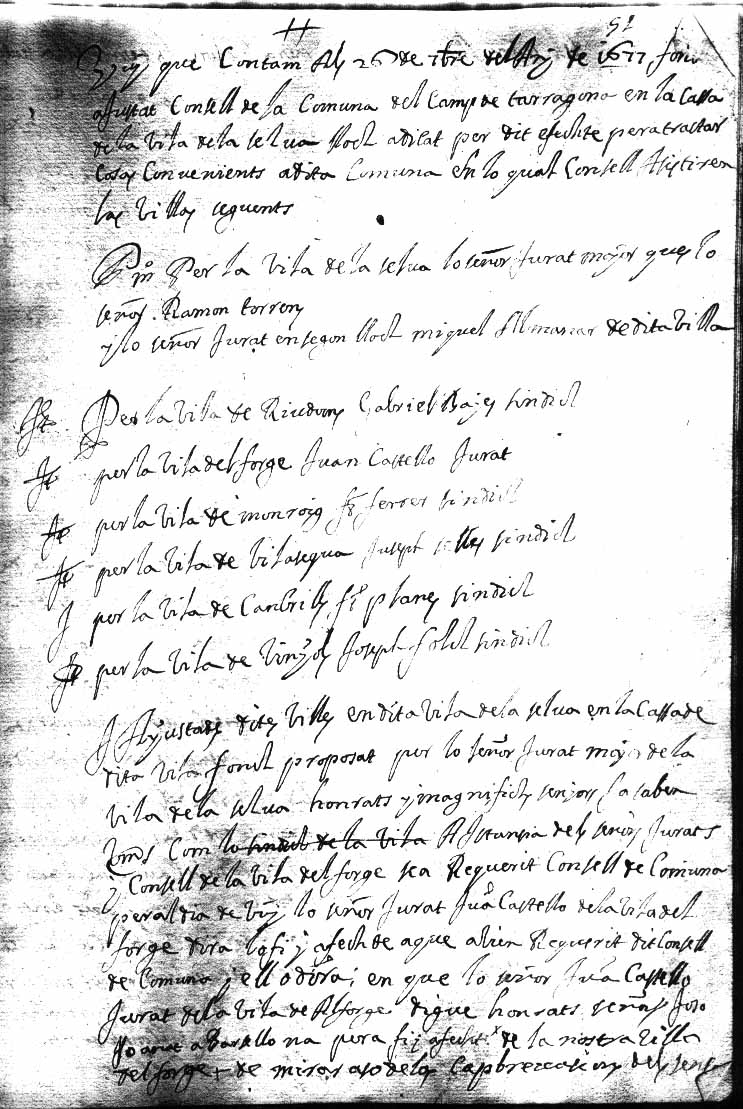 51
que Contam Als 26 de 7bre del Any de 1677 fonc
ajustat Consell de la Comuna del Camp de tarragona en la Cassa
de la vila de la selva lloch aditat per dit efechte pera tractar
Cosas Convenients adita Comuna En lo qual Consell Assistiren
las villas seguents
Pmo Per la vila de la selva lo señor Jurat major ques lo
señor Ramon torrens
y lo señor Jurat en segon lloch miquel de dita villa
Per la vila de Riudoms Gabriel Bajes sindich
per la vila del forge Juan Castello Jurat
per la vila de monroig fr ferrer sindich
per la vila de vilasequa Joseph sindich
per la vila de Cambrils fr planes sindich
per la vila de vinyols Joseph folch sindich
I Ajustades dites villes en dita vila de la selva en la Cassa de
dita vila fonch proposat per lo señor Jurat major de la
vila de la selva honrats y magnifichs senyors sa saben
Vms Com lo sindich de la vila A Istansia dels señors Jurats
y Consell de la vila del forge sea Requerit Consell de Comuna
per al dia de vuy lo señor Jurat Jua Castello de la vila del
forge dira lo fi y efech de aque avien Requerit dit Consell
de Comuna y ell o dira; en que lo señor Juan Castello
Jurat de la vila de Alforge digue honrats señors Jo so
anat a Barsellona pera fi y efechte x de la nostra villa
del forge + de mirar aso de les Capbrevasions dels sens